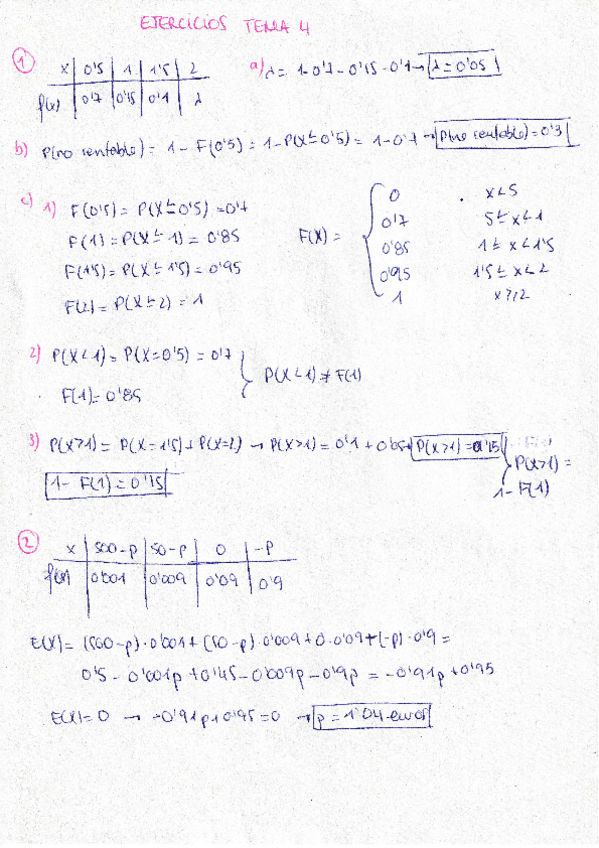 EJERCICIOS TEMA 4
1 x 0'5 1 1'5 2
f(x) 0'7 0'15 0'1 λ
a) λ = 1-0'7-0'15-0'1 → λ=0'05
b) P(no rentable) = 1 - F(0'5) = 1-P(X≤0'5) = 1-0'7 → P(no rentable)=0'3
c) 1) F(0'5) = P(X≤0'5) = 0'7
F(1) = P(X≤1) = 0'85
F(1'5) = P(X≤1'5) = 0'95
F(2) = P(X≤2) = 1
F(X) = { 0 x<5
0'7 5≤x<1
0'85 1≤x<1'5
0'95 1'5≤x<2
1 x≥2
2) P(X<1) = P(X=0'5) = 0'7
F(1) = 0'85
} P(X<1) ≠ F(1)
3) P(X>1) = P(X=1'5) + P(X=2) → P(X>1) = 0'1 + 0'05 → P(X>1) = 0'15
1 - F(1) = 0'15
} P(X>1) =
1-F(1)
2 x 500-p 50-p 0 -p
f(x) 0'001 0'009 0'09 0'9
E(X) = (500-p)·0'001 + (50-p)·0'009 + 0·0'09 + (-p)·0'9 =
0'5 - 0'001p + 0'45 - 0'009p - 0'9p = -0'91p + 0'95
E(X) = 0 → -0'91p + 0'95 = 0 → p = 1'04 euros